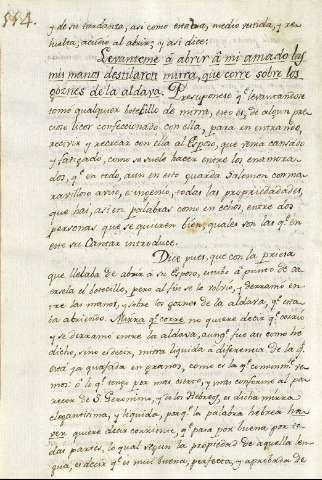 554.
y de su tardanza, así como estava, medio vestida, y re-
vuelta, acudio al abrir; y así dice:
Levantéme à abrir à mi amado las
mis manos destilaron mirra, que corre sobre los
goznes de la aldava. Presuponese q. levantandose
tomó qualquier botecillo de mirra, esto es, de algun pre-
cioso licor confeccionado con ella, para en entrando,
recivir y recrear con ella al Esposo, que venia cansado
y fatigado, como se suele hacer entre los enamora-
dos, q. en todo, aun en esto guarda Salomon con ma-
ravilloso aviso, è ingenio, todas las propriedades,
que hai, asi en palabras como en echos, entre dos
personas que se quieren bien, quales son las q. en
este su Cantar introduce.
Dice pues, que con la priesa
que llebaba de abrir à su Esposo, estubo à punto de
el botecillo, pero al fin se le volvio, y derramò en-
tre las manos, y sobre los goznes de la aldava, q. esta-
ba abriendo. Mirra q. corre no quiere decir q. corriò
y se derramò entre la aldava, aunq. fue asi como he
dicho, sino es decir, mirra liquida à diferencia de la q.
està ya quajada en granos, como es la q. comunm. ve-
mos: ò lo q. tengo por mas cierto, y mas conforme al pa-
recer de S. Geronimo, y de los Hebreos, es dicha mirra
elegantisima, y liquida, porq. la palabra hebrea
quiere decir corriente, q. pasa por buena por to-
das partes, lo qual segun la propiedad de aquella len-
gua, es decir q. es mui buena, perfecta, y aprobada de